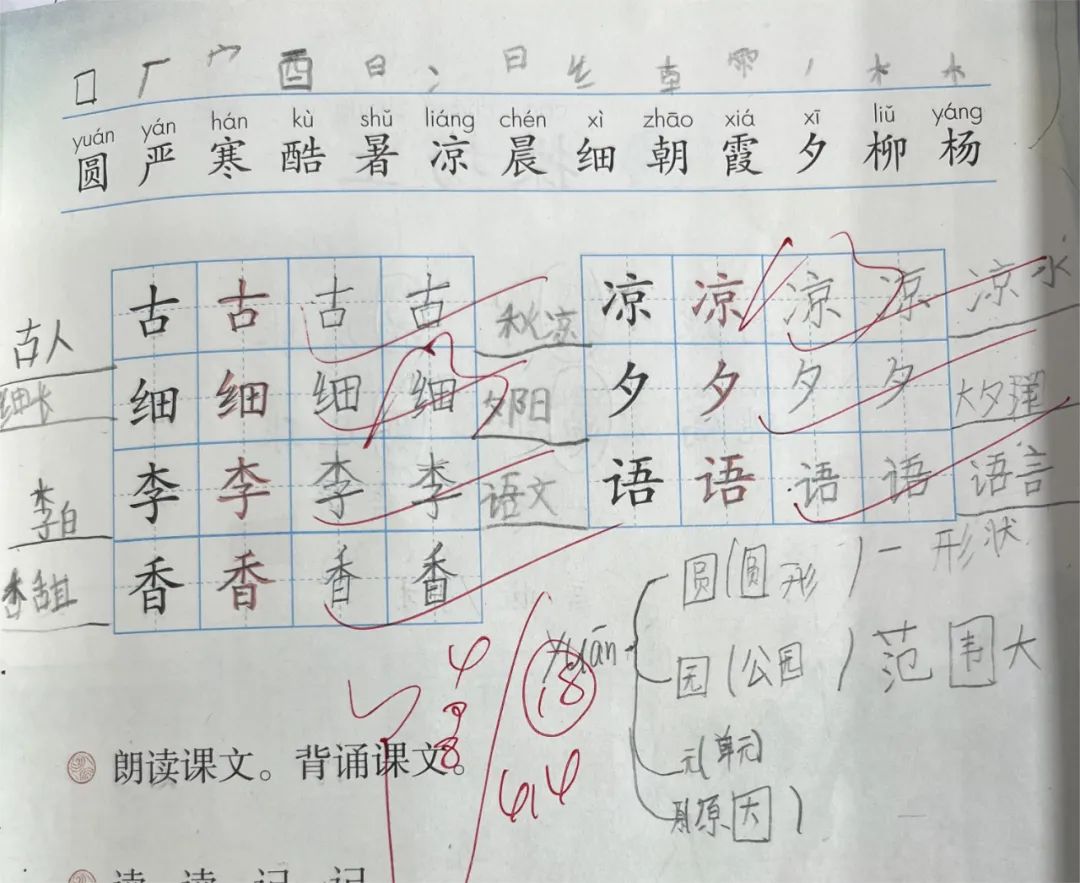 囗 厂 宀 酉 日 冫 日 纟 龺 雨 丿 木 木
yuán yán hán kù shǔ liáng chén xì zhāo xiá xī liǔ yáng
圆 严 寒 酷 暑 凉 晨 细 朝 霞 夕 柳 杨
古人 古 古 古 古 秋凉 凉 凉 凉 凉 凉水
细长 细 细 细 细 夕阳 夕 夕 夕 夕 大夕
李白 李 李 李 李 语文 语 语 语 语 语言
香 香 香 香
yuán
圆(圆形)一形状
园(公园)范围大
元(单元)
原因)
18
朗读课文。背诵课文。
读一读，记一记